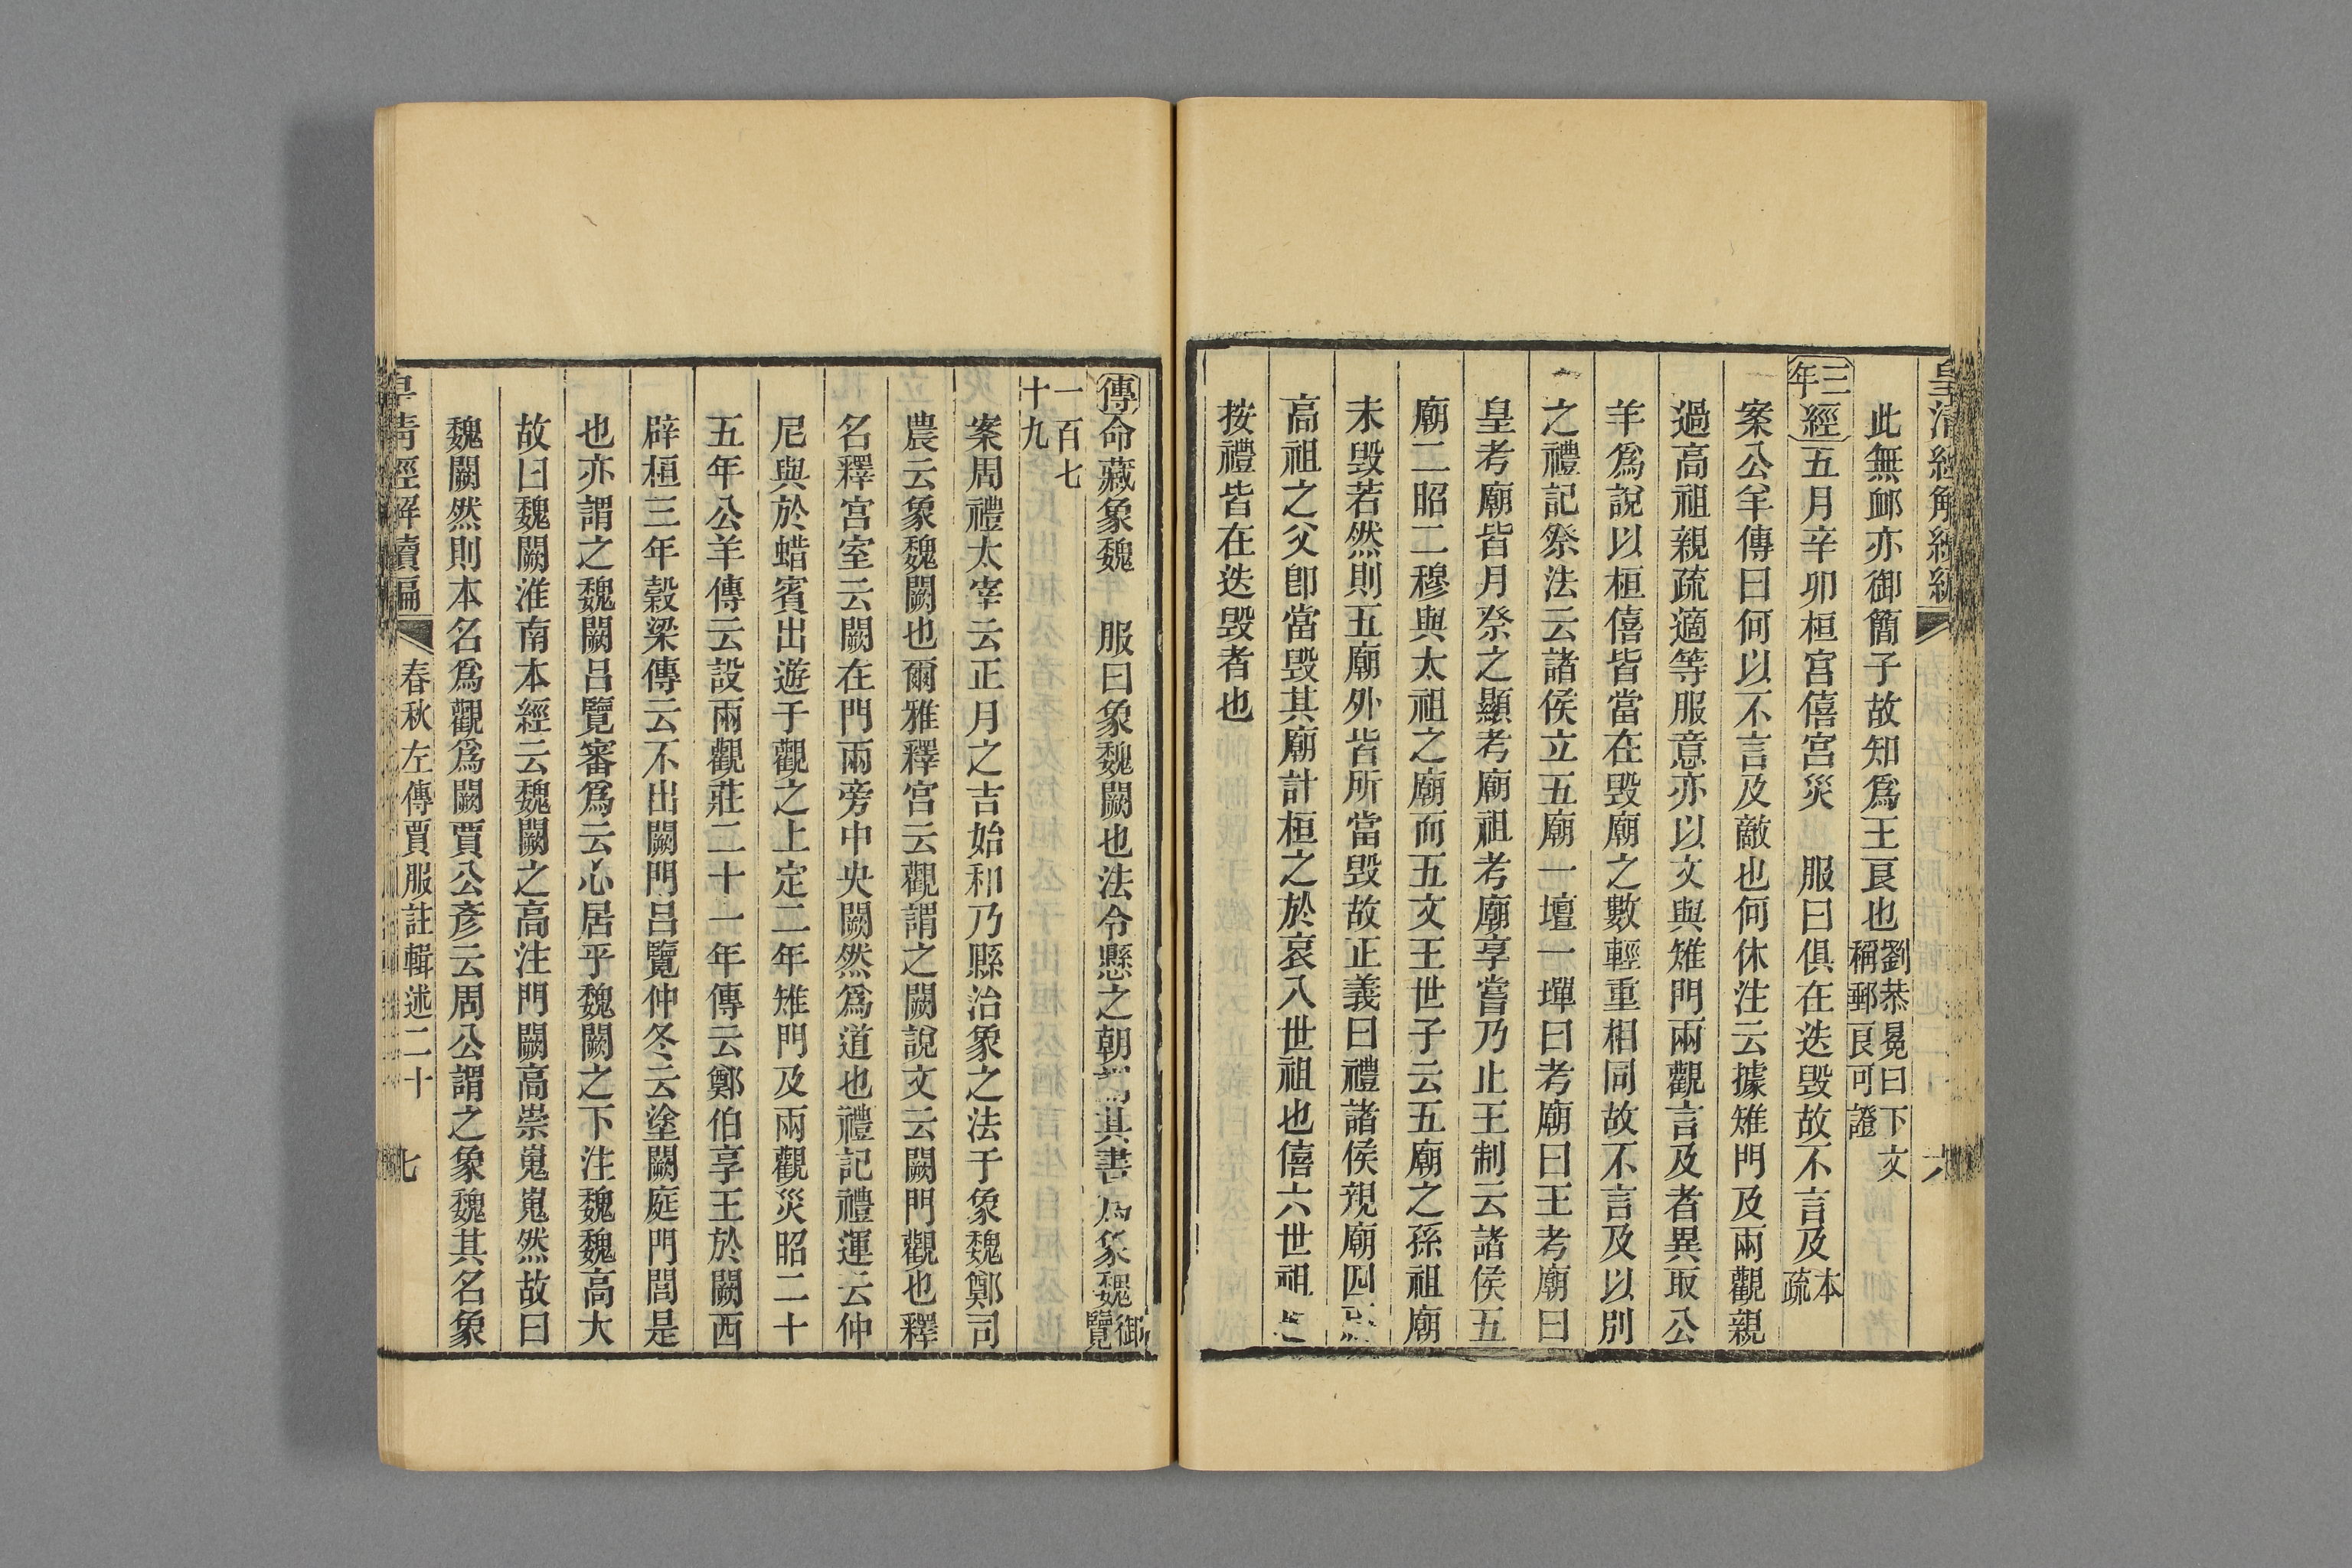 皇清經解續編
此無卹亦御簡子故知爲王良也劉恭冕曰下文稱郵良可證
三年經五月辛卯桓宮僖宮災 服曰俱在迭毀故不言及本疏
案公羊傳曰何以不言及敵也何休注云據雉門及兩觀親
過高祖親疏適等服意亦以文與雉門兩觀言及者異取公
羊爲說以桓僖皆當在毀廟之數輕重相同故不言及以別
之禮記祭法云諸侯立五廟一壇一墠曰考廟曰王考廟曰
皇考廟皆月祭之顯考廟祖考廟享嘗乃止王制云諸侯五
廟二昭二穆與太祖之廟而五文王世子云五廟之孫祖廟
未毀若然則五廟外皆所當毀故正義曰禮諸侯親廟四
高祖之父卽當毀其廟計桓之於哀八世祖也僖六世祖
按禮皆在迭毀者也
傳命藏象魏 服曰象魏闕也法令懸之朝其書爲象魏御覽
一百七十九
案周禮太宰云正月之吉始和乃縣治象之法于象魏鄭司
農云象魏闕也爾雅釋宮云觀謂之闕說文云闕門觀也釋
名釋宮室云闕在門兩旁中央闕然爲道也禮記禮運云仲
尼與於蜡賓出遊于觀之上定二年雉門及兩觀災昭二十
五年公羊傳云設兩觀莊二十一年傳云鄭伯享王於闕西
辟桓三年穀梁傳云不出闕門呂覽仲冬云塗闕庭門閭是
也亦謂之魏闕呂覽審爲云心居乎魏闕之下注魏魏高大
故曰魏闕淮南本經云魏闕之高注門闕高崇嵬嵬然故曰
魏闕然則本名爲觀爲闕賈公彥云周公謂之象魏其名象
皇清經解續編 春秋左傳賈服註輯述二十 七